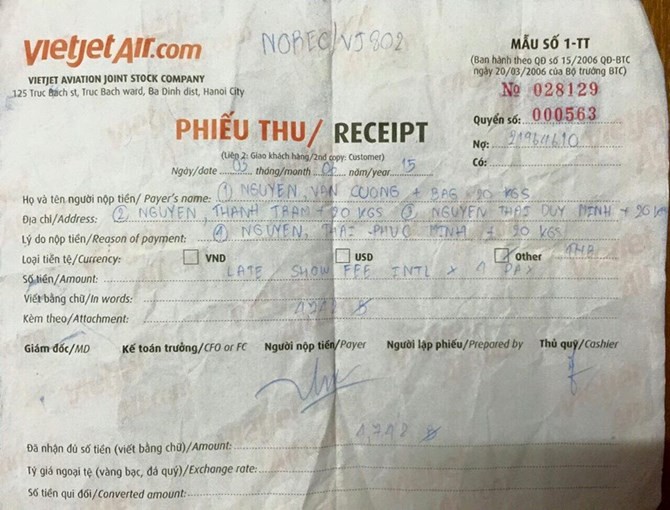 vietjetAir.com
NOBEC/VJ802
MẪU SỐ 1-TT
(Ban hành theo QĐ số 15/2006 QĐ-BTC
ngày 20/03/2006 của Bộ trưởng BTC)
VIETJET AVIATION JOINT STOCK COMPANY
125 Truc Bach st, Truc Bach ward, Ba Dinh dist, Hanoi City
№ 028129
Quyển số: 000563
PHIẾU THU/ RECEIPT
Nợ:
(Liên 2: Giao khách hàng/2nd copy: Customer)
Có:
Ngày/date 03 tháng/month 06 năm/year 15
Họ và tên người nộp tiền/ Payer's name: ① NGUYEN, VAN CUONG + BAG 20 KGS
Địa chỉ/Address: ② NGUYEN, THANH TRAM + 20 KGS ③ NGUYEN THAI DUY MINH + 20 KGS
Lý do nộp tiền/Reason of payment: ④ NGUYEN, THAI PHUC MINH + 20 KGS
Loại tiền tệ/Currency: VND USD Other THB
Số tiền/Amount: LATE / SHOW FEE INTL x 1 PAX
Viết bằng chữ/In words:
Kèm theo/Attachment: 1748 ฿
Giám đốc/MD Kế toán trưởng/CFO or FC Người nộp tiền/Payer Người lập phiếu/Prepared by Thủ quỹ/Cashier
1,748 ฿
Đã nhận đủ số tiền (viết bằng chữ)/Amount:
Tỷ giá ngoại tệ (vàng bạc, đá quý)/Exchange rate:
Số tiền qui đổi/Converted amount: